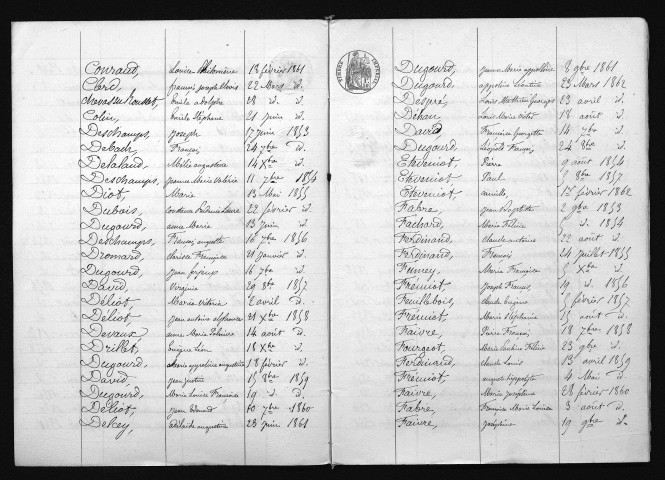 Conraud, Louise Philomène 18 février 1861
Clerc, françois joseph Denis 22 Mars d.
Chevassu Rousset, Emile adolphe 28 d. d.
Colin, Emile Stéphane 21 juin d.
Deschamps, Joseph 17 juin 1853
François 24 7bre d.
Delaland, Mélie augustine 14 Xbre d.
Deschamps, jeanne Marie Valérie 11 7bre 1854
Diot, Marie 13 Mai 1855
Dubois, Louise 22 février d.
Dugourd, anne Marie 13 juin d.
Deschamps, François auguste 16 7bre 1856
Dromard, clarisse Françoise 21 janvier d.
Dugourd, jean 16 7bre d.
David, Virginie 29 8bre 1857
Déliot, Marie Victoire 2 avril d.
Déliot, jean antoine alphonse 21 Xbre 1858
Devaux, anne Marie 14 août d.
Drillet, Eugène Léon 18 Xbre d.
Dugourd, appoline augustine 18 février d.
David, jean justin 15 8bre 1859
Dugourd, Marie Louise Françoise 19 d. d.
Déliot, jean Edouard 10 7bre 1860
Delcey, adélaïde augustine 23 juin 1861
Dugourd, jeanne Marie appolline 8 9bre 1861
Dugourd, appoline Léontine 23 Mars 1862
Després, Louis Mathieu Georges 23 avril d.
Louis Marie Victor 18 août d.
David, Françoise Georgette 14 7bre d.
Dugourd, Léopold François 24 8bre d.
Eteveniot, Pierre 9 août 1854
Eteveniot, Paul 5 8bre 1857
Eteveniot, Camille 1er février 1862
Fabre, jean Baptiste 2 9bre 1853
Fachard, Marie Félicie d. 1854
Ferdinand, claude antoine 22 août d.
Ferdinand, François 24 juillet 1855
Fumey, Marie Françoise 5 Xbre d.
Frémiot, Joseph François 19 d. 1856
Feuillebois, claude Eugène 5 février 1857
Frémiot, Marie Stéphanie 15 août d.
Faivre, Pierre François 18 7bre 1858
Fourgeot, Marie Pauline Félicie 23 9bre d.
Ferdinand, claude Louis 13 avril 1859
Frémiot, auguste hyppolyte 4 Mai d.
Faivre, Marie joséphine 28 février 1860
Fabre, Françoise Marie Louise 3 août d.
Faivre, joséphine 19 9bre d.